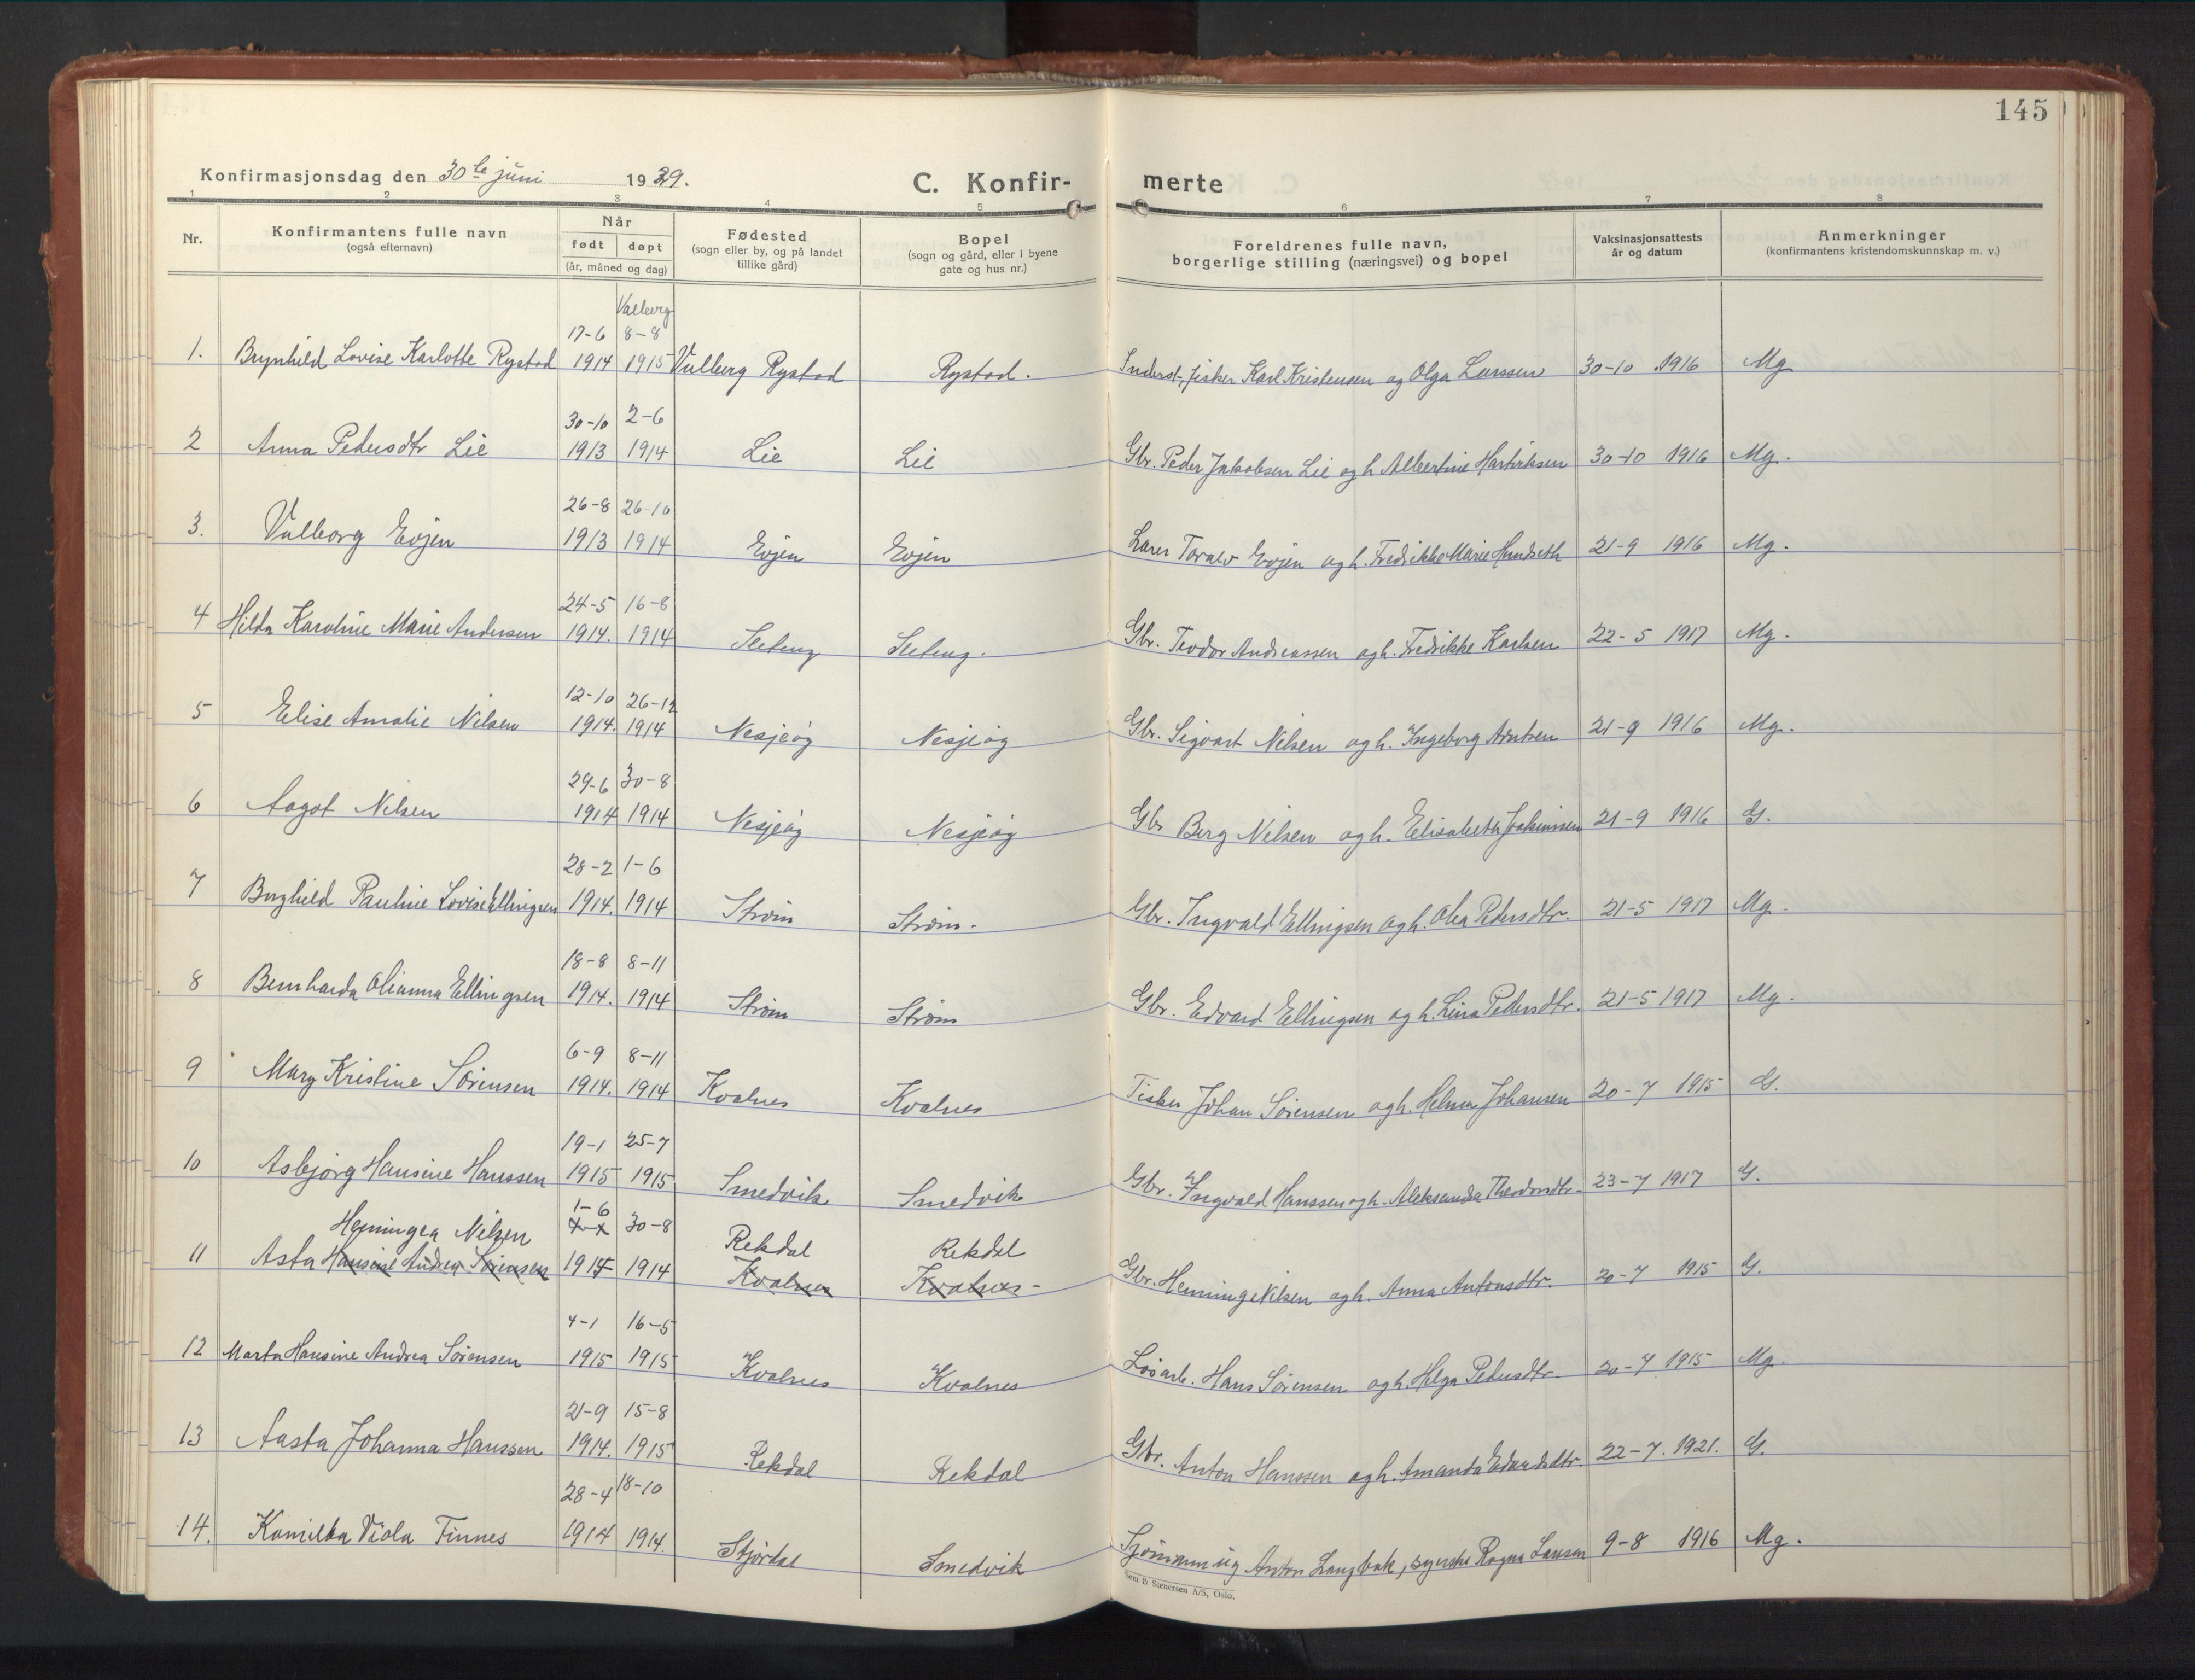 145
Konfirmasjonsdag den 30te juni 1929.
C. Konfir- merte
1 2 3 4 5 6 7 8
Nr. Konfirmantens fulle navn (også efternavn) Når født døpt (år, måned og dag) Fødested (sogn eller by, og på landet tillike gård) Bopel (sogn og gård, eller i byene gate og hus nr.) Foreldrenes fulle navn, borgerlige stilling (næringsvei) og bopel Vaksinasjonsattests år og datum Anmerkninger (konfirmantens kristendomskunnskap m. v.)
Valberg
17-6 8-8
1. Brynhild Lovise Karlotte Rystad 1914 1915 Valberg Rystad Rystad. Inderst, fisker Karl Kristensen og Olga Larssen 30-10 1916 Mg
30-10 2-6
2 Anna Pedersdtr Lie 1913 1914 Lie Lie Gbr. Peder Jakobsen Lie og h. Albertine Hartviksen 30-10 1916 Mg.
26-8 26-10
3. Valborg Evjen 1913 1914 Evjen Evjen Lærer Toralv Evjen og h. Fredrikke Marie Hundseth 21-9 1916 Mg.
24-5 16-8
4 Hilda Karoline Marie Andersen 1914. 1914 Gbr. Teodor Andreassen og h. Fredrikke Karlsen 22-5 1917 Mg.
12-10 26-12
5 Elise Amalie Nilsen 1914. 1914 Nesjeøy Nesjeøy Gbr. Sigvart Nilsen og h. Ingeborg Arntsen 21-9 1916 Mg.
29-6 30-8
6 Aagot Nilsen 1914 1914 Nesjeøy Nesjeøy Gbr Berg Nilsen og h. Elisabeth Joakimsen 21-9 1916 G.
28-2 1-6
7 Borghild Pauline Lovise Ellingsen 1914. 1914 Strøm Strøm. Gbr. Ingvald Ellingsen og h. Olea Pedersdtr. 21-5 1917 Mg.
18-8 8-11
8 Bernharda Olianna Ellingsen 1914. 1914 Strøm Strøm Gbr. Edvard Ellingsen og h. Lina Pedersdtr. 21-5 1917 Mg.
6-9 8-11
9 Mary Kristine Sørensen 1914. 1914 Kvalnes Kvalnes Fisker Johan Sørensen og h. Helma Johansen 20-7 1915 G.
19-1 25-7
10 Asbjørg Hansine Hanssen 1915 1915 Smedvik Smedvik Gbr. Ingvald Hanssen og h. Aleksanda Theodorsdtr. 23-7 1917 G.
Hemingea Nilsen 1-6 30-8 Rekdal Rekdal
11 Asta Hansine Andrea Sørensen 1914 1914 Kvalnes Kvalnes- Gbr. Henning Nilsen og h. Anna Antonsdtr. 20-7 1915 G.
4-1 16-5
12 Marta Hansine Andrea Sørensen 1915 1915 Kvalnes Kvalnes Løsarb. Hans Sørensen og h. Helga Pedersdtr. 20-7 1915 Mg.
21-9 15-8
13 Aasta Johanna Hanssen 1914. 1915 Rekdal Rekdal Gbr. Anton Hanssen og h. Amanda Edvardsdtr. 22-7. 1921. G.
28-4 18-10
14. Kamilla Viola Finnes 1914 1914. Stjørdal Smedvik Sjømann ug Anton Langbak, syerske Ragna Larsen 9-8 1916 Mg.
Sem & Stenersen A/S, Oslo.